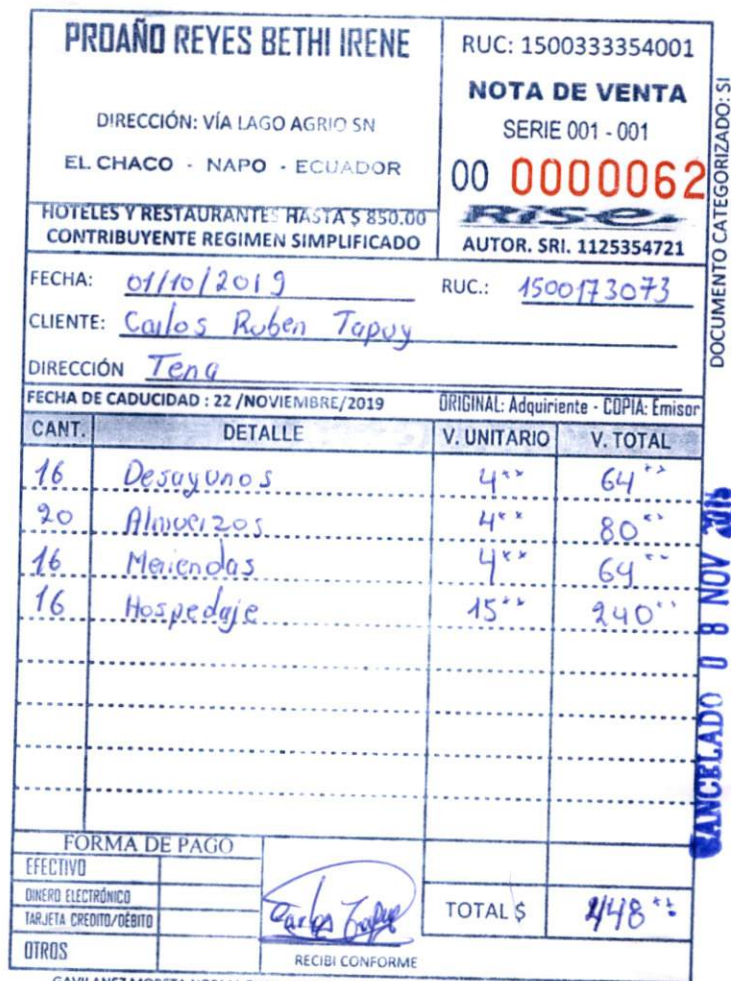 PROAÑO REYES BETHI IRENE
DIRECCIÓN: VÍA LAGO AGRIO SN
EL CHACO - NAPO - ECUADOR
HOTELES Y RESTAURANTES HASTA $ 850.00
CONTRIBUYENTE REGIMEN SIMPLIFICADO
RUC: 1500333354001
NOTA DE VENTA
SERIE 001 - 001
00 0000062
Rise
AUTOR. SRI. 1125354721
DOCUMENTO CATEGORIZADO: SI
FECHA: 01/10/2019 RUC.: 1500173073
CLIENTE: Carlos Ruben Tapuy
DIRECCIÓN Tena
FECHA DE CADUCIDAD : 22 /NOVIEMBRE/2019 ORIGINAL: Adquiriente - COPIA: Emisor
CANT. DETALLE V. UNITARIO V. TOTAL
16 Desayunos 4 64
20 Almuerzos 4 80
16 Meriendas 4 64
16 Hospedaje 15 240
CANCELADO 0 8 NOV
FORMA DE PAGO
EFECTIVO
DINERO ELECTRÓNICO
TARJETA CREDITO/DÉBITO
OTROS
Carlos Tapuy
RECIBI CONFORME
TOTAL $ 448